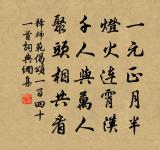 一元正月半
燈火連霄漢
千人與萬人
聚頭相共看
釋師範偈頌一百四十
一首詞典網集